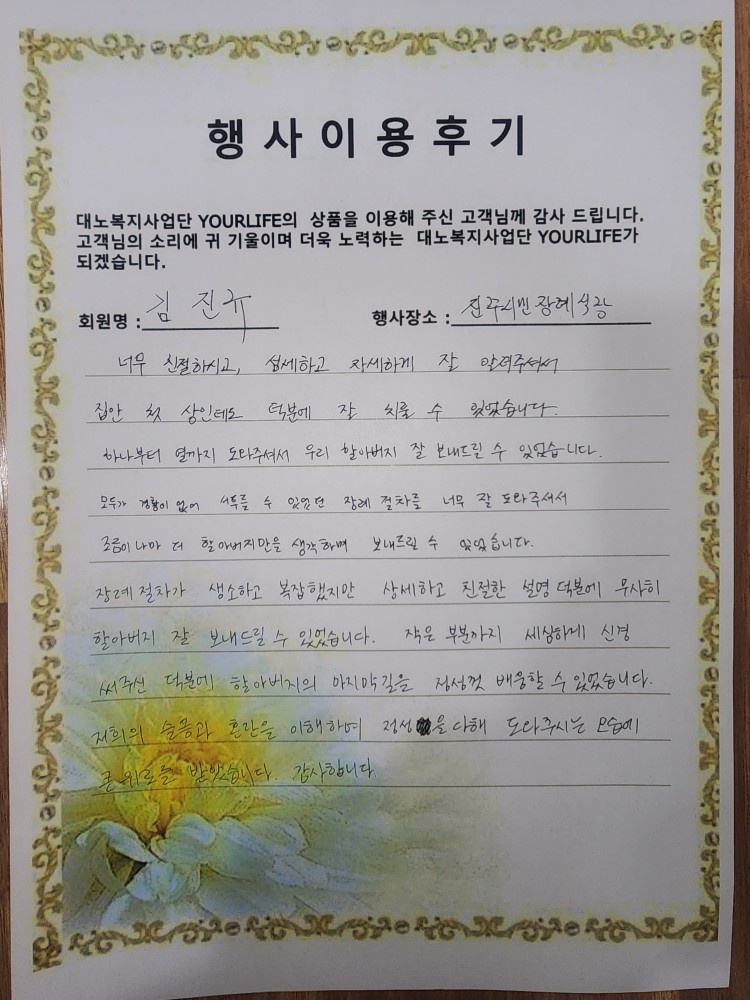 행사이용후기
대노복지사업단 YOURLIFE의 상품을 이용해 주신 고객님께 감사 드립니다.
고객님의 소리에 귀 기울이며 더욱 노력하는 대노복지사업단 YOURLIFE가
되겠습니다.
회원명 : 김 진규 행사장소 : 진주시민장례식장
너무 친절하시고, 섬세하고 자세하게 잘 알려주셔서
집안 첫 상인데도 덕분에 잘 치를 수 있었습니다.
하나부터 열까지 도와주셔서 우리 할아버지 잘 보내드릴 수 있었습니다.
모두가 경황이 없어 서투를 수 있었던 장례 절차를 너무 잘 도와주셔서
조금이나마 더 할아버지만을 생각하며 보내드릴 수 있었습니다.
장례절차가 생소하고 복잡했지만 상세하고 친절한 설명 덕분에 무사히
할아버지 잘 보내드릴 수 있었습니다. 작은 부분까지 세심하게 신경
써주신 덕분에 할아버지의 마지막길을 정성껏 배웅할 수 있었습니다.
저희의 슬픔과 혼란을 이해하며 정성을 다해 도와주시는 모습에
큰 위로를 받았습니다. 감사합니다.